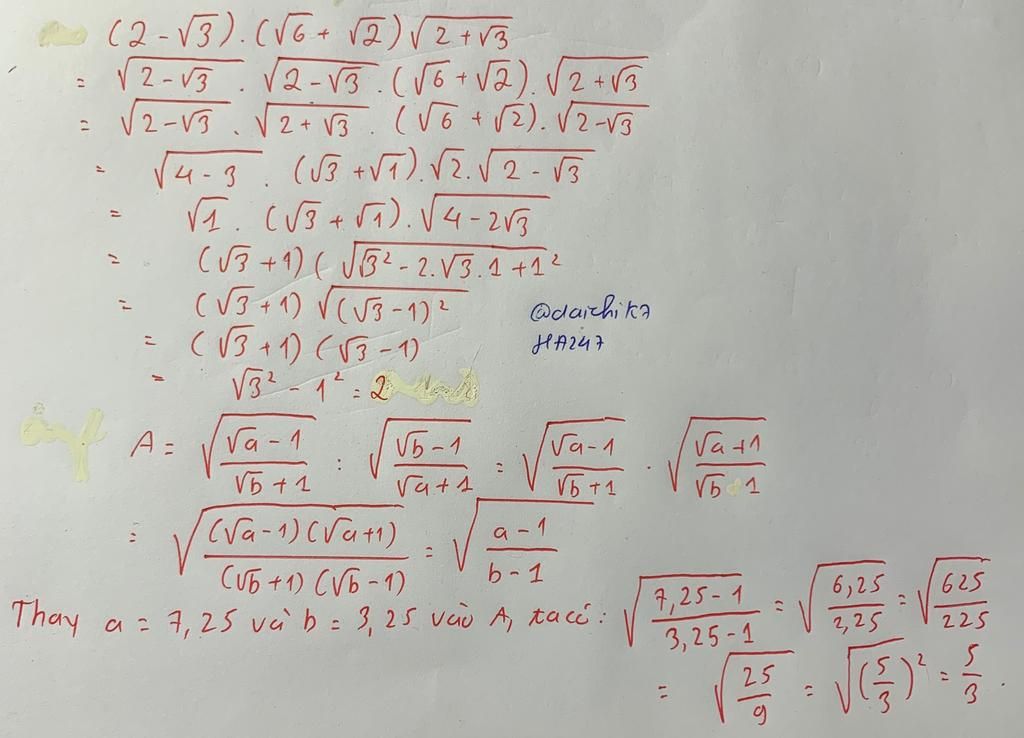 (2 - √3) . (√6 + √2) √(2 + √3)
= √(2 - √3) . √(2 - √3) . (√6 + √2) . √(2 + √3)
= √(2 - √3) . √(2 + √3) . (√6 + √2) . √(2 - √3)
= √(4 - 3) . (√3 + √1) . √2 . √(2 - √3)
= √1 . (√3 + √1) . √(4 - 2√3)
= (√3 + 1) ( √(√3² - 2.√3.1 + 1²)
= (√3 + 1) √((√3 - 1)²)
@daichik7
= (√3 + 1) (√3 - 1)
HA247
= √3² - 1² = 2
A = √((√a - 1)/(√b + 1)) : √((√b - 1)/(√a + 1)) = √((√a - 1)/(√b + 1)) . √((√a + 1)/(√b 1))
= √(((√a - 1)(√a + 1))/((√b + 1)(√b - 1))) = √((a - 1)/(b - 1))
Thay a = 7,25 và b = 3,25 vào A, ta có: √((7,25 - 1)/(3,25 - 1)) = √(6,25/2,25) = √(625/225)
= √(25/9) = √((5/3)²) = 5/3 .